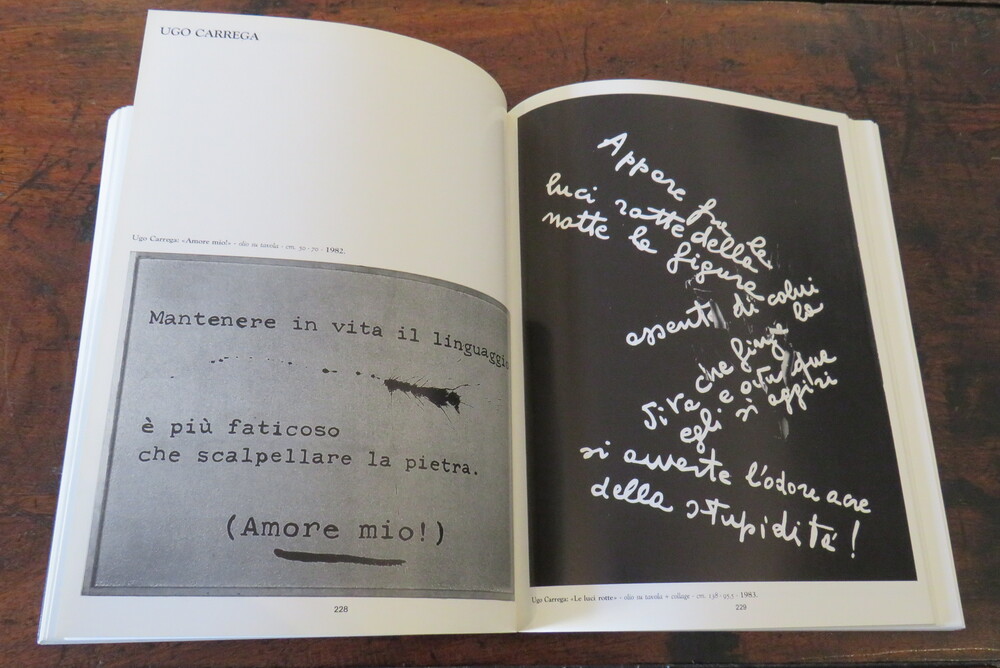 UGO CARREGA
Ugo Carrega: «Amore mio!» - olio su tavola - cm. 50 · 70 - 1982.
Mantenere in vita il linguaggio
è più faticoso
che scalpellare la pietra.
(Amore mio!)
228
Appare fra le
luci rotte della
notte la figura
assente di colui
che finge la
Diva e ovunque
egli si aggiri
si avverte l'odore acre
della stupidità!
Ugo Carrega: «Le luci rotte» - olio su tavola + collage - cm. 138 · 95,5 - 1983.
229